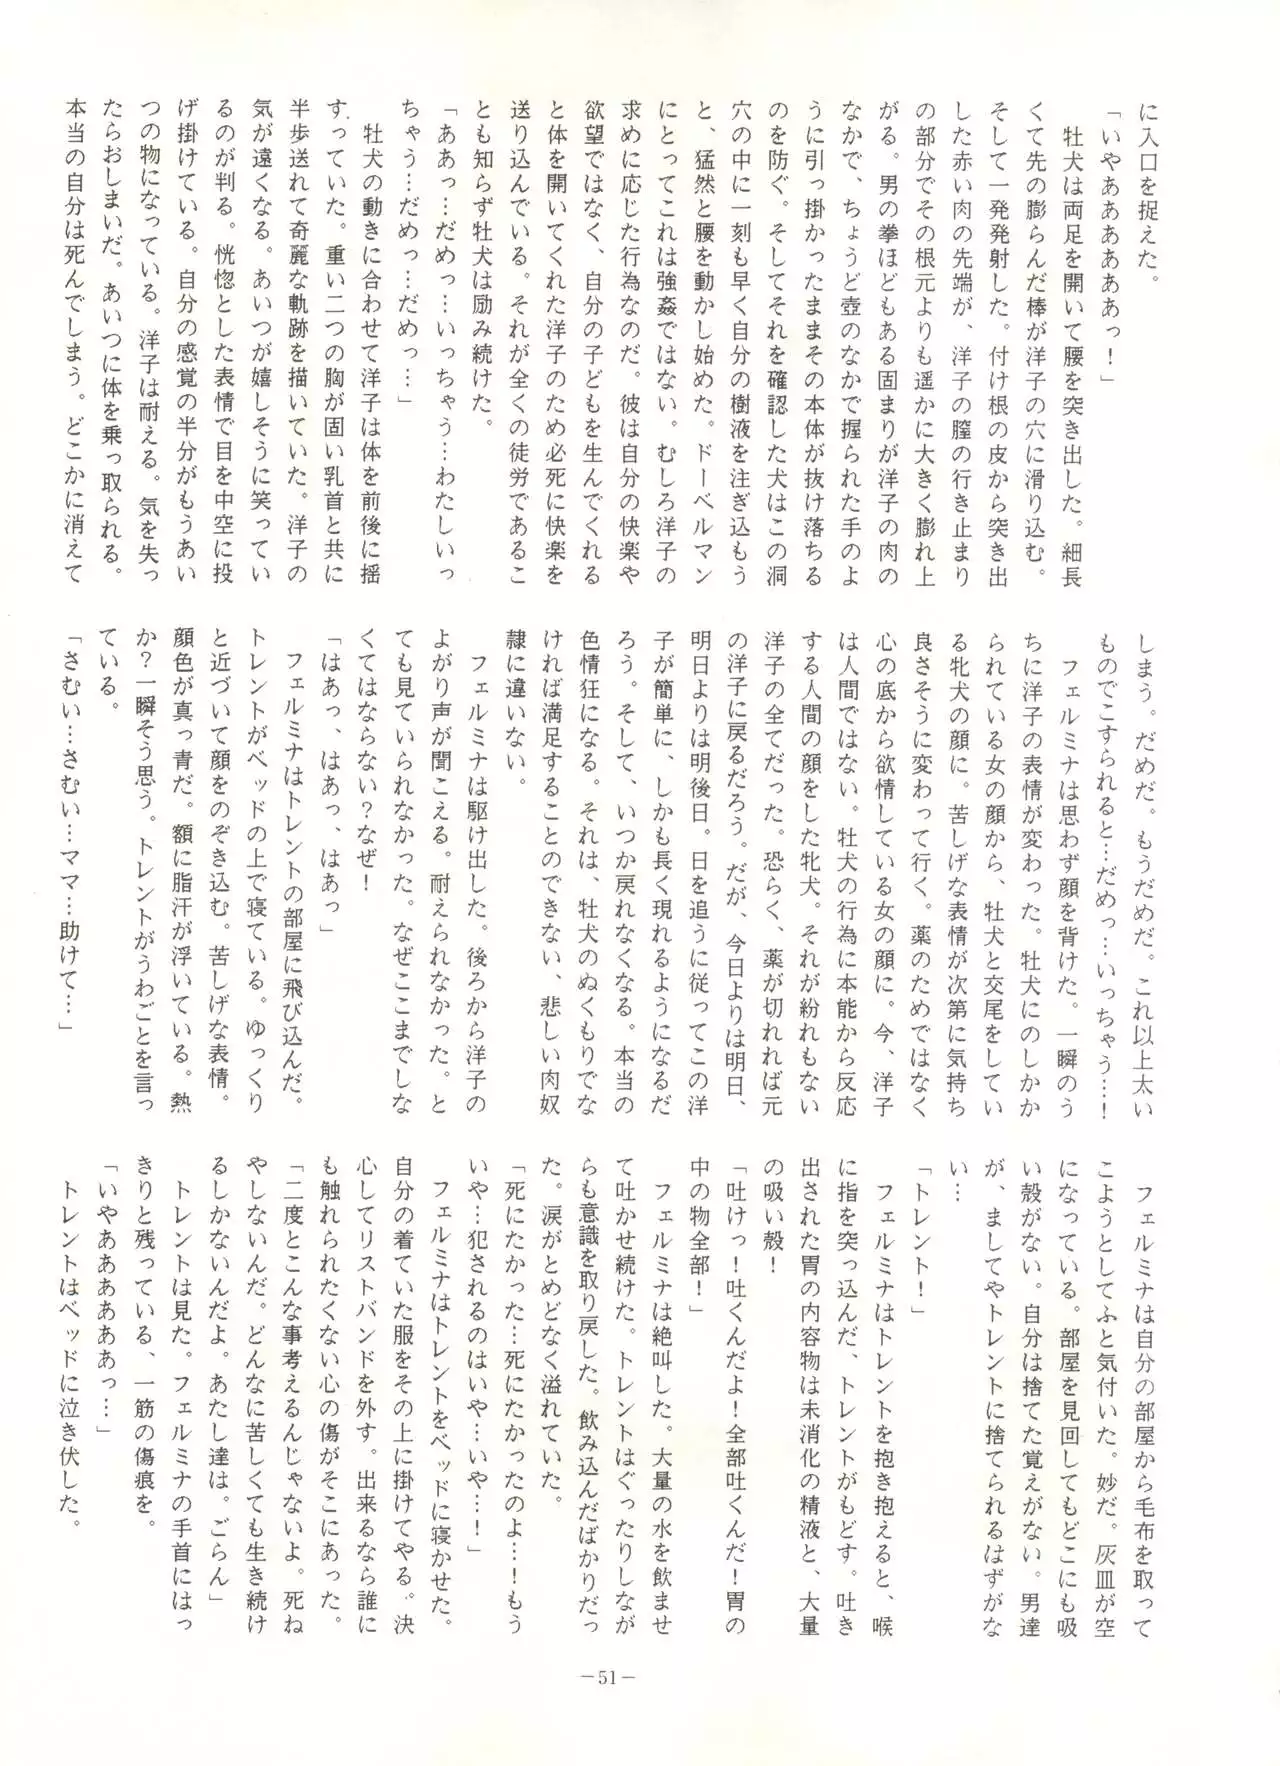 に入口を捉えた。
「いやああああああっ！」
　牡犬は両足を開いて腰を突き出した。細長
くて先の膨らんだ棒が洋子の穴に滑り込む。
そして一発発射した。付け根の皮から突き出
した赤い肉の先端が、洋子の膣の行き止まり
の部分でその根元よりも遥かに大きく膨れ上
がる。男の拳ほどもある固まりが洋子の肉の
なかで、ちょうど壺のなかで握られた手のよ
うに引っ掛かったままその本体が抜け落ちる
のを防ぐ。そしてそれを確認した犬はこの洞
穴の中に一刻も早く自分の樹液を注ぎ込もう
と、猛然と腰を動かし始めた。ドーベルマン
にとってこれは強姦ではない。むしろ洋子の
求めに応じた行為なのだ。彼は自分の快楽や
欲望ではなく、自分の子どもを生んでくれる
と体を開いてくれた洋子のため必死に快楽を
送り込んでいる。それが全くの徒労であるこ
とも知らず牡犬は励み続けた。
「ああっ…だめっ…いっちゃう…わたしいっ
ちゃう…だめっ…だめっ…」
　牡犬の動きに合わせて洋子は体を前後に揺
すっていた。重い二つの胸が固い乳首と共に
半歩送れて奇麗な軌跡を描いていた。洋子の
気が遠くなる。あいつが嬉しそうに笑ってい
るのが判る。恍惚とした表情で目を中空に投
げ掛けている。自分の感覚の半分がもうあい
つの物になっている。洋子は耐える。気を失っ
たらおしまいだ。あいつに体を乗っ取られる。
本当の自分は死んでしまう。どこかに消えて
しまう。だめだ。もうだめだ。これ以上太い
ものでこすられると…だめっ…いっちゃう…！
　フェルミナは思わず顔を背けた。一瞬のう
ちに洋子の表情が変わった。牡犬にのしかか
られている女の顔から、牡犬と交尾をしてい
る牝犬の顔に。苦しげな表情が次第に気持ち
良さそうに変わって行く。薬のためではなく
心の底から欲情している女の顔に。今、洋子
は人間ではない。牡犬の行為に本能から反応
する人間の顔をした牝犬。それが紛れもない
洋子の全てだった。恐らく、薬が切れれば元
の洋子に戻るだろう。だが、今日よりは明日、
明日よりは明後日。日を追うに従ってこの洋
子が簡単に、しかも長く現れるようになるだ
ろう。そして、いつか戻れなくなる。本当の
色情狂になる。それは、牡犬のぬくもりでな
ければ満足することのできない、悲しい肉奴
隷に違いない。
　フェルミナは駆け出した。後ろから洋子の
よがり声が聞こえる。耐えられなかった。と
ても見ていられなかった。なぜここまでしな
くてはならない？なぜ！
「はあっ、はあっ、はあっ」
　フェルミナはトレントの部屋に飛び込んだ。
トレントがベッドの上で寝ている。ゆっくり
と近づいて顔をのぞき込む。苦しげな表情。
顔色が真っ青だ。額に脂汗が浮いている。熱
か？一瞬そう思う。トレントがうわごとを言っ
ている。
「さむい…さむい…ママ…助けて…」
　フェルミナは自分の部屋から毛布を取って
こようとしてふと気付いた。妙だ。灰皿が空
になっている。部屋を見回してもどこにも吸
い殻がない。自分は捨てた覚えがない。男達
が、ましてやトレントに捨てられるはずがな
い…
「トレント！」
　フェルミナはトレントを抱き抱えると、喉
に指を突っ込んだ、トレントがもどす。吐き
出された胃の内容物は未消化の精液と、大量
の吸い殻！
「吐けっ！吐くんだよ！全部吐くんだ！胃の
中の物全部！」
　フェルミナは絶叫した。大量の水を飲ませ
て吐かせ続けた。トレントはぐったりしなが
らも意識を取り戻した。飲み込んだばかりだっ
た。涙がとめどなく溢れていた。
「死にたかった…死にたかったのよ…！もう
いや…犯されるのはいや…いや…！」
　フェルミナはトレントをベッドに寝かせた。
自分の着ていた服をその上に掛けてやる。決
心してリストバンドを外す。出来るなら誰に
も触れられたくない心の傷がそこにあった。
「二度とこんな事考えるんじゃないよ。死ね
やしないんだ。どんなに苦しくても生き続け
るしかないんだよ。あたし達は。ごらん」
　トレントは見た。フェルミナの手首にはっ
きりと残っている、一筋の傷痕を。
「いやああああああっ…」
　トレントはベッドに泣き伏した。
－51－